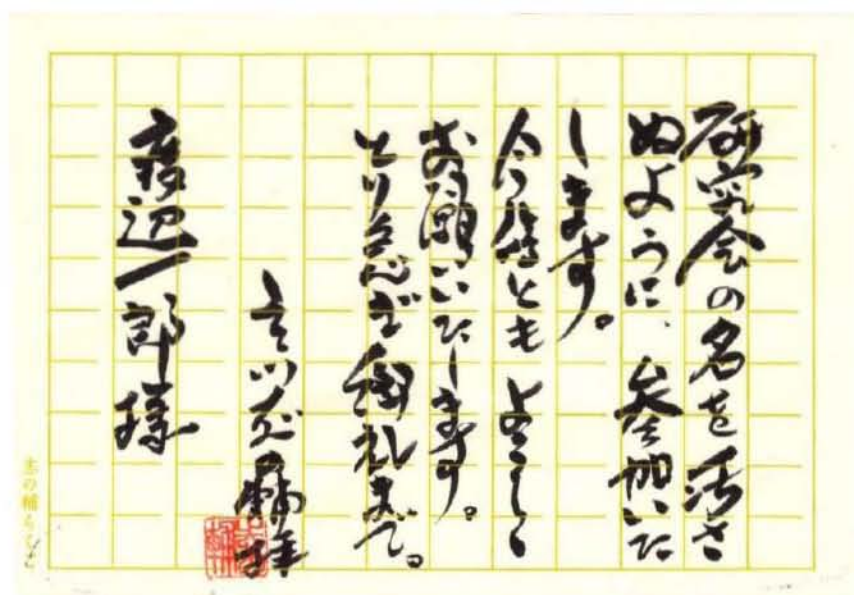 研究会の名を汚さ
ぬように、参加いた
します。
今後とも よろしく
お願いいたします。
とり急ぎ御礼まで。
拝
渡辺一郎様